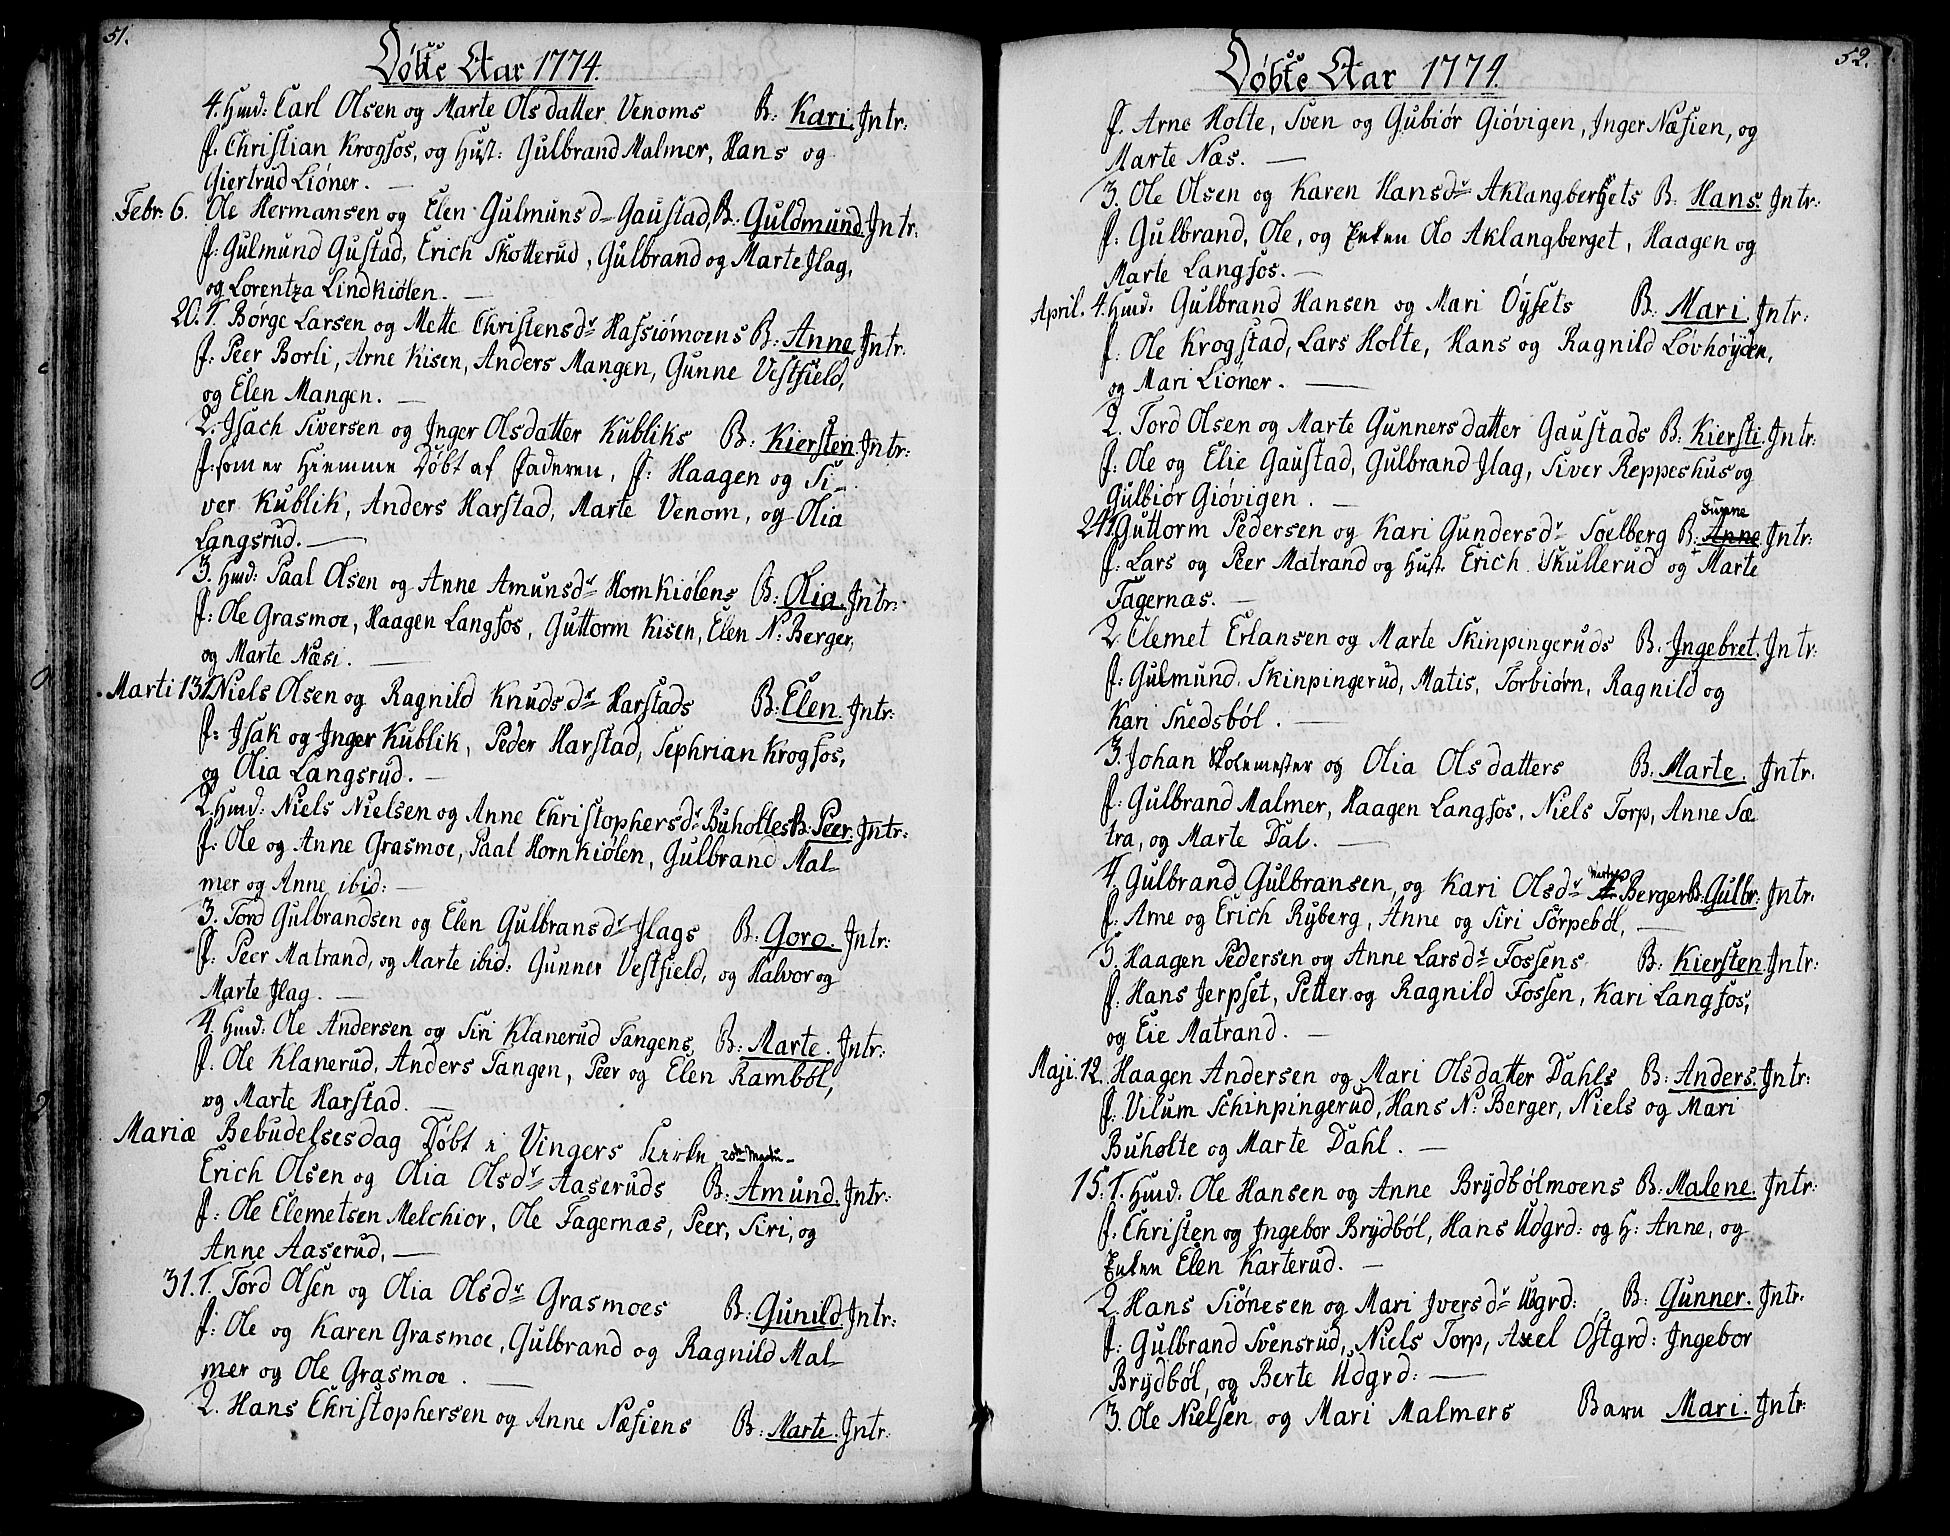 51.
Døbte Aar 1774.
4. Hmd: Carl Olsen og Marte Olsdatter Venoms B: Kari. Intr:
F. Christian Krogfos, og Hust: Gulbrand Malmer, Hans og
Giertrud Liøner. —
Febr: 6. Ole Hermansen og Elen Gulmunsdr Gaustad, B: Guldmund. Intr:
F: Gulmund Gustad, Erich Skotterud, Gulbrand og Marte Ilag,
og Lorentza Lindkiølen. —
20. 1. Børge Larsen og Mette Christensdr Hafsiømoens B: Anne Intr:
F: Peer Borli, Arne Kisen, Anders Mangen, Gunne Vestfield,
og Elen Mangen. —
2. Isach Siversen og Inger Olsdatter Kubliks B: Kiersten. Intr:
F: som er Hiemme Døbt af Faderen, F: Haagen og Si-
ver Kublik, Anders Harstad, Marte Venom, og Olia
Langsrud. —
3. Hmd: Paal Olsen og Anne Amunsdr Hornkiølens B: Olia. Intr:
F: Ole Grasmoe, Haagen Langfos, Guttorm Kisen, Elen N: Berger,
og Marte Næsi. —
Marti 13. 1. Niels Olsen og Ragnild Knudsdr Harstads B: Elen. Intr:
F: Isak og Inger Kublik, Peder Harstad, Sephrian Krogfos,
og Olia Langsrud. —
2. Hmd: Niels Nielsen og Anne Christophersdr Buholtes B: Peer. Intr:
F: Ole og Anne Grasmoe, Paal Hornkiølen, Gulbrand Mal-
mer og Anne ibid: —
3. Tord Gulbrandsen og Elen Gulbransdr Ilags B: Goro. Intr:
F: Peer Matrand, og Marte ibid: Gunner Vestfield, og Halvor og
Marte Ilag. —
4. Hmd: Ole Andersen og Siri Klanerud Tangens B: Marte. Intr:
F: Ole Klanerud, Anders Tangen, Peer og Elen Rambøl,
og Marte Harstad. —
Mariæ Bebudelsesdag Døbt i Vingers Kirke
Erich Olsen og Olia Olsdr Aaseruds B: Amund. Intr:
F: Ole Clemetsen Melchior, Ole Fagernæs, Peer, Siri, og
Anne Aaserud. —
31. 1. Tord Olsen og Olia Olsdr Grasmoes B: Gunild. Intr:
F: Ole og Karen Grasmoe, Gulbrand og Ragnild Mal-
mer og Ole Grasmoe. —
2. Hans Christophersen og Anne Næsiens B: Marte. Intr:
52.
Døbte Aar 1774.
F. Arne Holte, Sven og Gubiør Giøvigen, Inger Næsien, og
Marte Næs. —
3. Ole Olsen og Karen Hansdr Aklangbergets B: Hans. Intr:
F: Gulbrand, Ole, og Enken Olo Aklangberget, Haagen og
Marte Langfos. —
April. 4. Hmd. Gulbrand Hansen og Mari Øysets B: Mari. Intr:
F: Ole Krogstad, Lars Holte, Hans og Ragnild Løvhøyden,
og Mari Liøner. —
2. Tord Olsen og Marte Gunnersdatter Gaustads B: Kiersti. Intr:
F: Ole og Elie Gaustad, Gulbrand Ilag, Siver Reppeshus og
Gulbiør Giøvigen. —
Sunne
24. 1. Guttorm Pedersen og Kari Gundersdr Soelberg B: Anne Intr:
F: Lars og Peer Matrand og Hust. Erich Skullerud og Marte
Fagernæs. —
2. Clemet Erlansen og Marte Skinpingeruds B. Ingebret. Intr:
F: Gulmund Skinpingerud, Matis, Torbiørn, Ragnild og
Kari Snedsbøl. —
3. Johan Skolemester og Olia Olsdatters B. Marte. Intr.
F: Gulbrand Malmer, Haagen Langfos, Niels Torp, Anne Sæ
tra, og Marte Dal. —
4. Gulbrand Gulbransen, og Kari Olsdr Berger B: Gulbr: Intr.
F: Arne og Erich Ryberg, Anne og Siri Sørpebøl, —
5. Haagen Pedersen og Anne Larsdr Fossens B: Kiersten. Intr:
F. Hans Jerpset, Petter og Ragnild Fossen, Kari Langfos,
og Eie Matrand. —
Maji. 12. Haagen Andersen og Mari Olsdatter Dahls B: Anders. Intr:
F. Vilum Schinpingerud, Hans N: Berger, Niels og Mari
Buholte og Marte Dahl. —
15. 1. Hmd. Ole Hansen og Anne Brydbølmoens B: Malene. Intr:
F. Christen og Ingebor Brydbøl, Hans Udgrd: og H: Anne, og
Enken Elen Karterud. —
2. Hans Siønesen og Mari Iversdr Udgrd: B: Gunner. Intr:
F: Gulbrand Svensrud, Niels Torp, Axel Ostgrd: Ingebor
Brydbøl, og Berte Udgrd: —
3. Ole Nielsen og Mari Malmers Barn Mari. Intr: